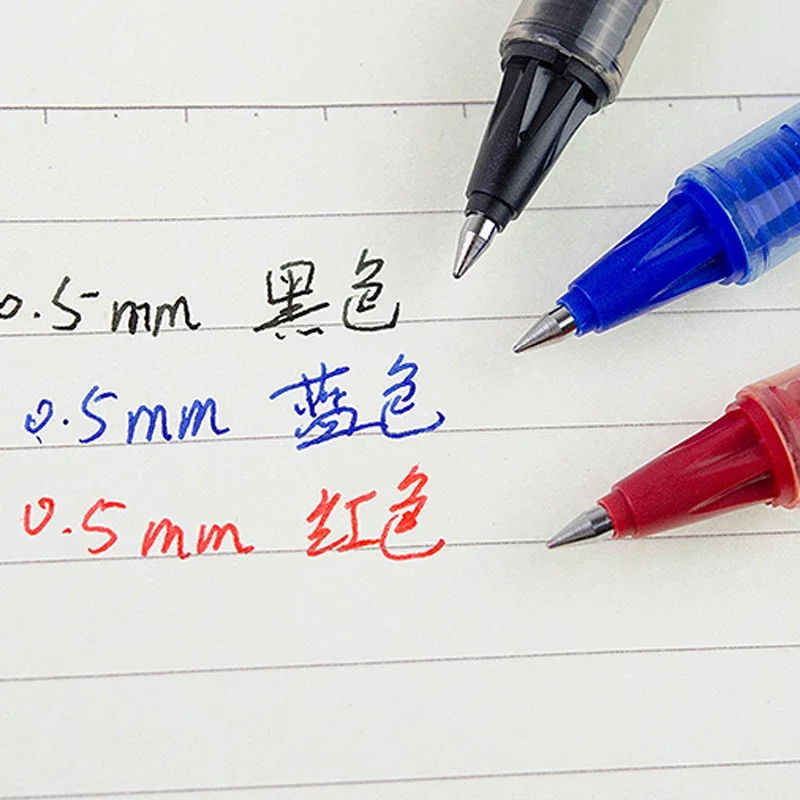 0.5mm 黑色
0.5mm 蓝色
0.5mm 红色